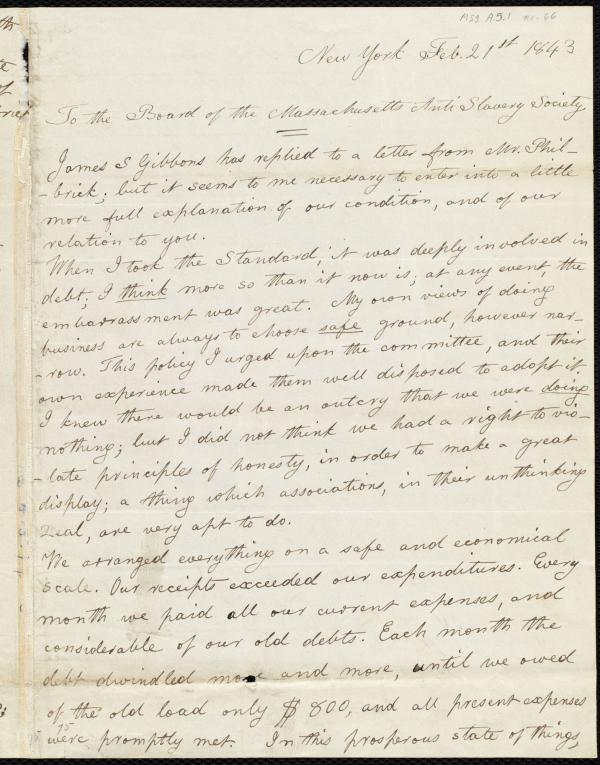 Ms. A.5.1 no. 66
New York Feb. 21st 1843
To the Board of the Massachusetts Anti Slavery Society
James S Gibbons has replied to a letter from Mr. Phil-
-brick; but it seems to me necessary to enter into a little
more full explanation of our condition, and of our
relation to you.
When I took the Standard, it was deeply involved in
debt; I think more so than it now is; at any event, the
embarrassment was great. My own views of doing
business are always to choose safe ground, however nar-
-row. This policy I urged upon the committee, and their
own experience made them well disposed to adopt it.
I knew there would be an outcry that we were doing
nothing; but I did not think we had a right to vio-
-late principles of honesty, in order to make a great
display; a thing which associations, in their unthinking
zeal, are very apt to do.
We arranged everything on a safe and economical
scale. Our receipts exceeded our expenditures. Every
month we paid all our current expenses, and
considerable of our old debts. Each month the
debt dwindled more and more, until we owed
of the old load only $800, and all present expenses
were promptly met. In this prosperous state of things,